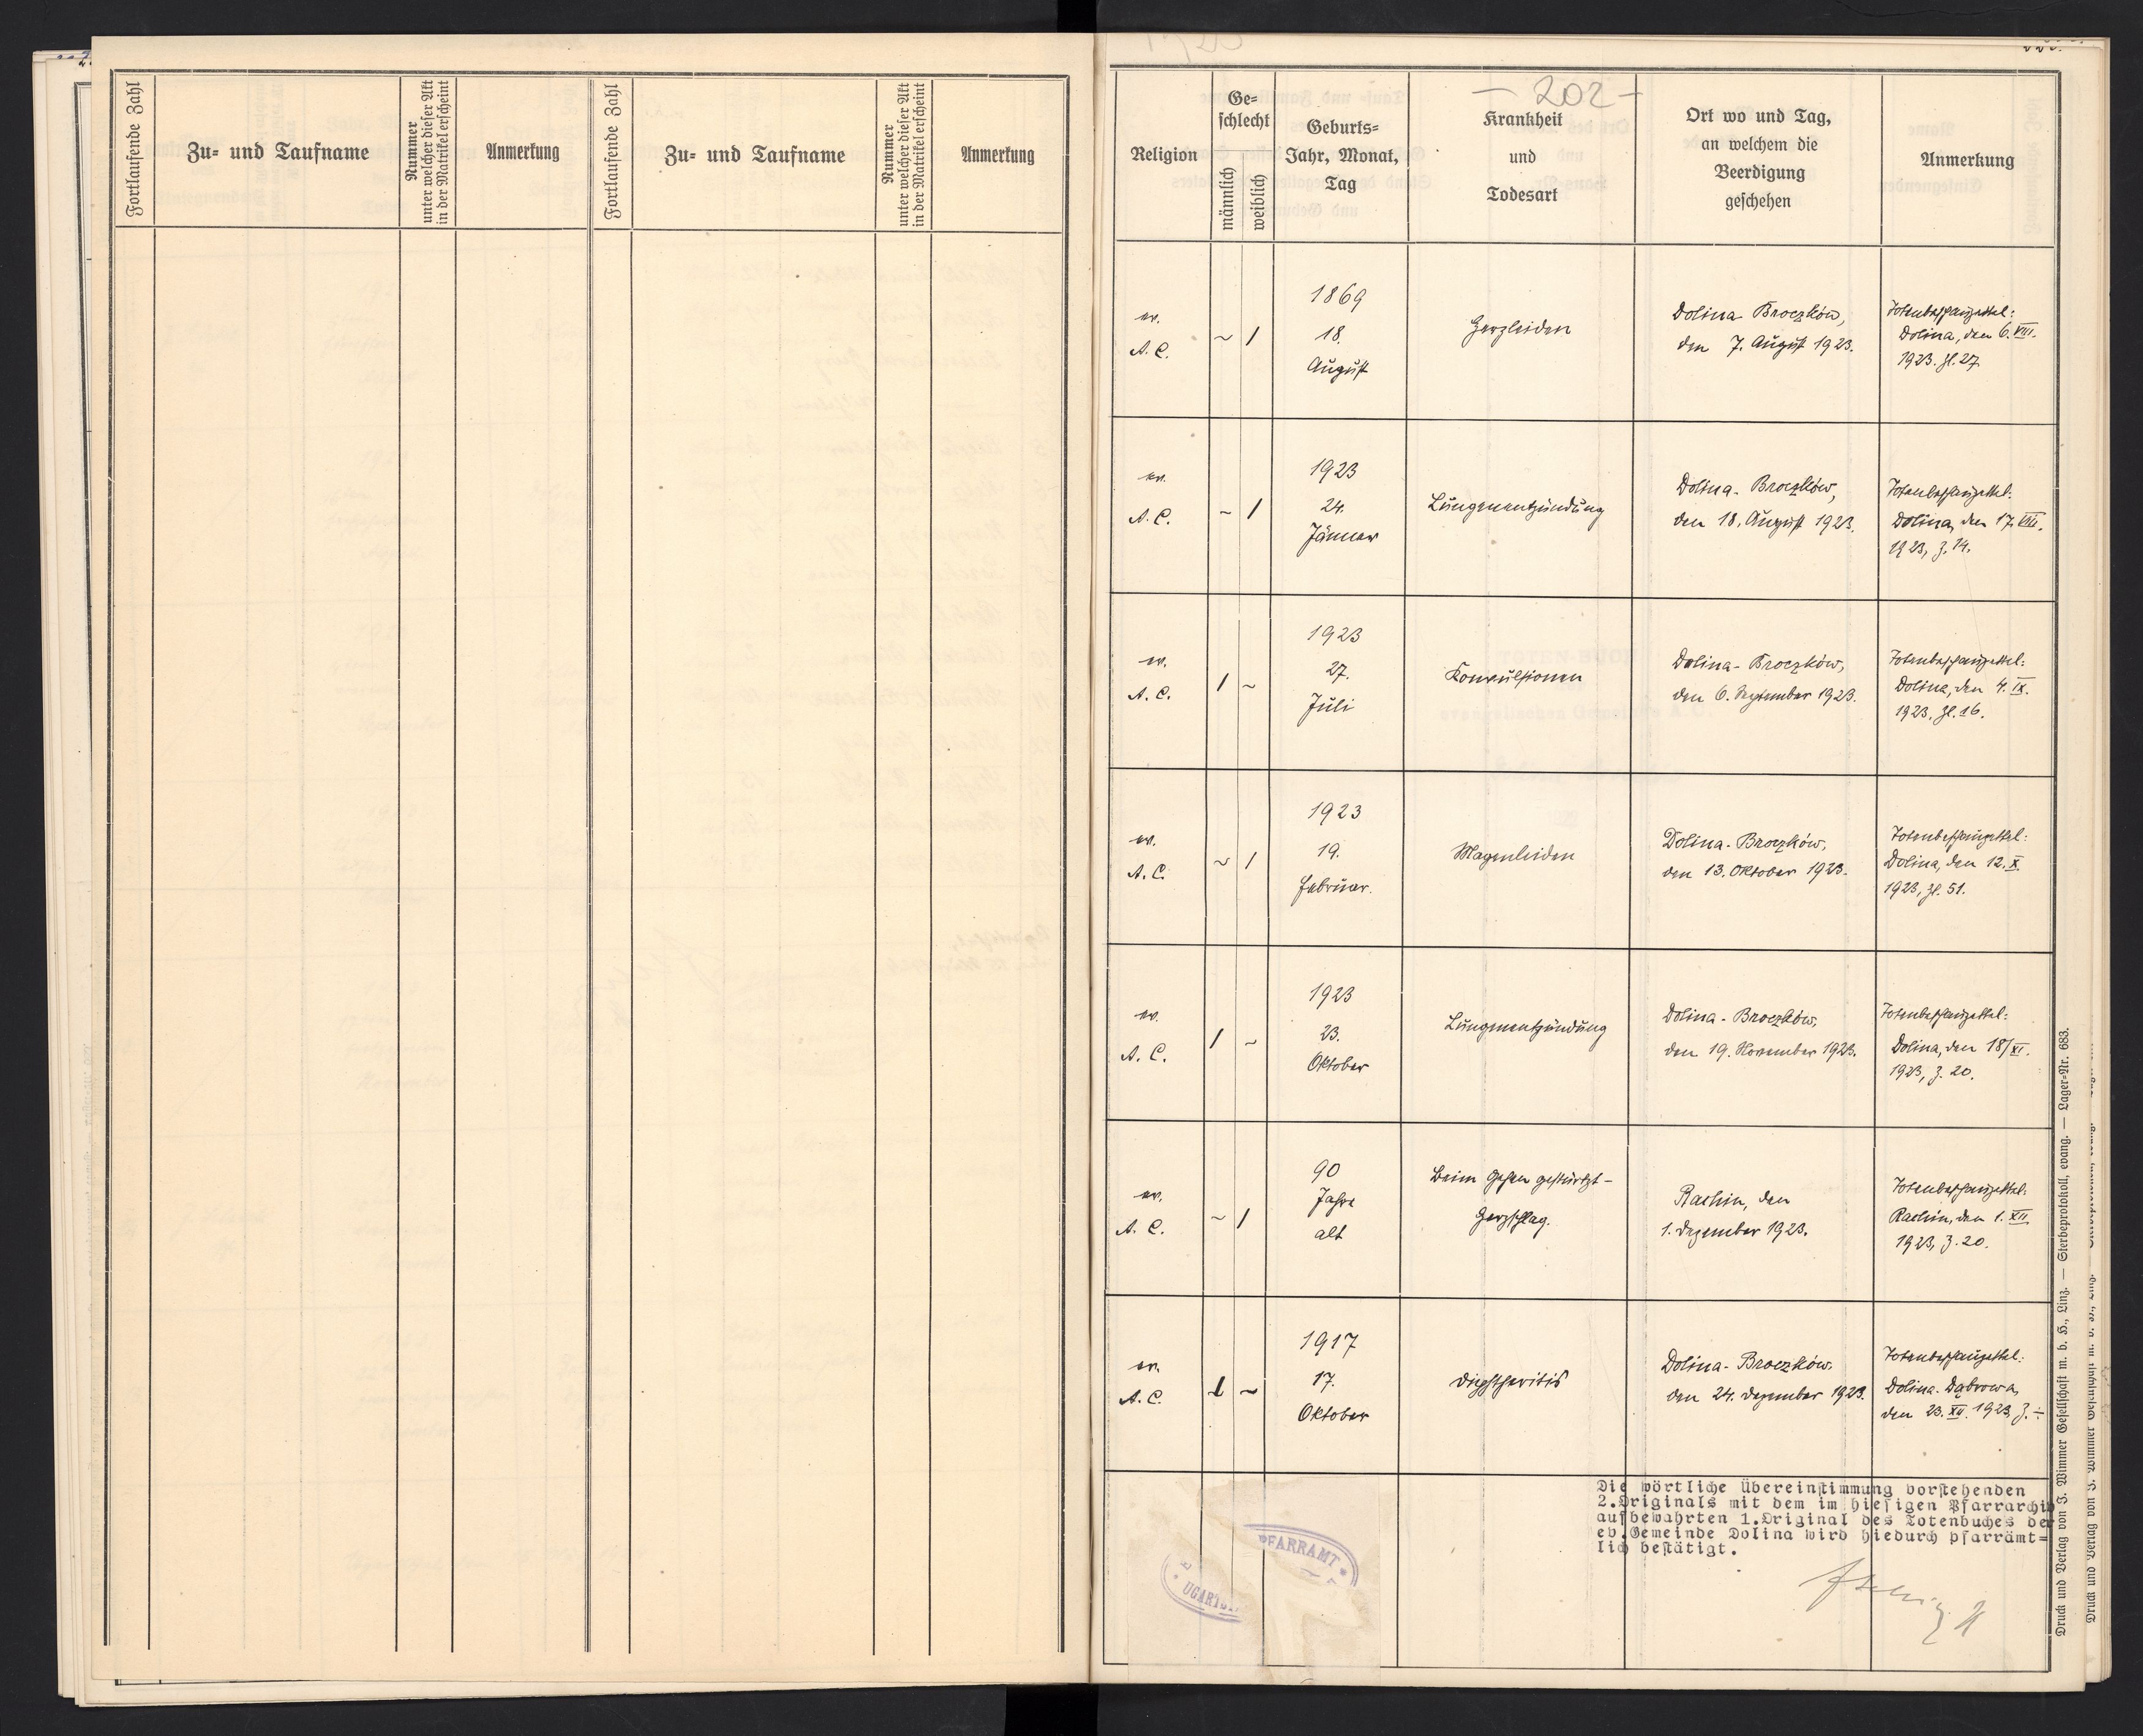 Fortlaufende Zahl
Zu- und Taufname
Nummer
unter welcher dieser Akt
in der Matrikel erscheint
Anmerkung
Fortlaufende Zahl
Zu- und Taufname
Nummer
unter welcher dieser Akt
in der Matrikel erscheint
Anmerkung
- 202 -
Religion
Ge=
schlecht
männlich
weiblich
Geburts=
Jahr, Monat,
Tag
Krankheit
und
Todesart
Ort wo und Tag,
an welchem die
Beerdigung
geschehen
Anmerkung
ev.
A. C.
~ 1
1869
18.
August
Herzleiden
Dolina-Broczków,
den 7. August 1923.
Totenbeschauzettel:
Dolina, den 6. VIII.
1923. Zl. 27.
ev.
A. C.
~ 1
1923
24.
Jänner
Lungenentzündung
Dolina-Broczków,
den 18. August 1923.
Totenbeschauzettel:
Dolina, den 17. VIII.
1923, Z. 14.
ev.
A. C.
1 ~
1923
27.
Juli
Konvulsionen
Dolina-Broczków,
den 6. September 1923.
Totenbeschauzettel:
Dolina, den 4. IX.
1923, Zl. 16.
ev.
A. C.
~ 1
1923
19.
Februar.
Magenleiden
Dolina-Broczków,
den 13. Oktober 1923.
Totenbeschauzettel:
Dolina, den 12. X.
1923, Zl. 51.
ev.
A. C.
1 ~
1923
23.
Oktober
Lungenentzündung
Dolina-Broczków,
den 19. November 1923.
Totenbeschauzettel:
Dolina, den 18/XI.
1923, Z. 20.
ev.
A. C.
~ 1
90
Jahre
alt
Beim Gehen gestürzt -
Herzschlag.
Rachin, den
1. Dezember 1923.
Totenbeschauzettel:
Rachin, den 1. XII.
1923, Z. 20.
ev.
A. C.
1 ~
1917
17.
Oktober
Diphtheritis
Dolina-Broczków,
den 24. Dezember 1923.
Totenbeschauzettel:
Dolina-Dąbrowa,
den 23. XII. 1923, Z. ÷
Die wörtliche Übereinstimmung vorstehenden
2.Originals mit dem im hiesigen Pfarrarchiv
aufbewahrten 1.Original des Totenbuches der
ev.Gemeinde Dolina wird hiedurch pfarrämt=
lich bestätigt.
PFARRAMT
Druck und Verlag von J. Wimmer Gesellschaft m. b. H., Linz. — Sterbeprotokoll, evang. — Lager=Nr. 683.